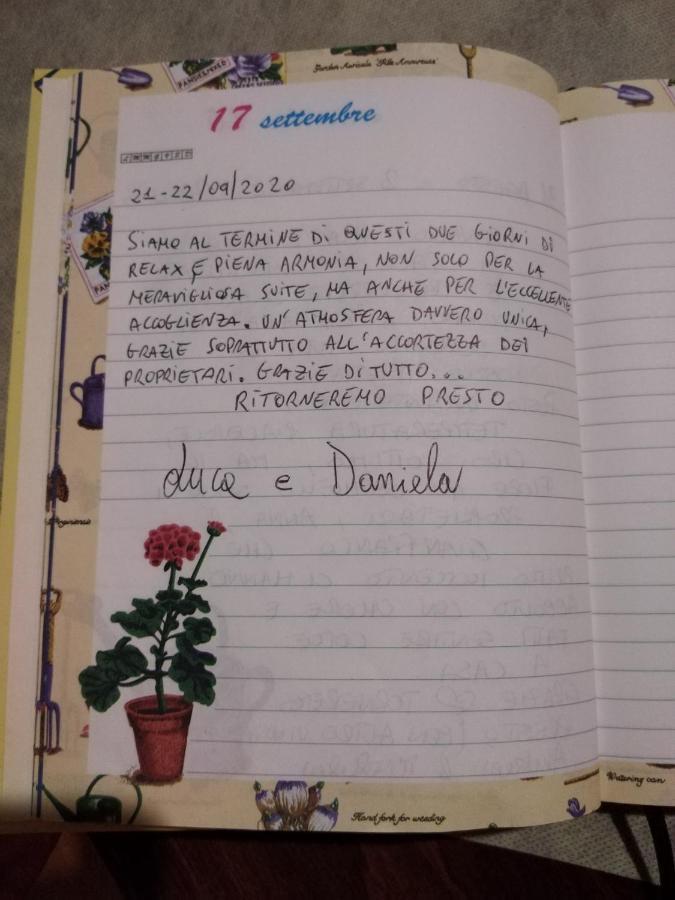 Garden Auricula
PANDEMYXED
17 settembre
21-22/09/2020
SIAMO AL TERMINE DI QUESTI DUE GIORNI DI
RELAX E PIENA ARMONIA, NON SOLO PER LA
MERAVIGLIOSA SUITE, MA ANCHE PER L'ECCELLENTE
ACCOGLIENZA. UN'ATMOSFERA DAVVERO UNICA,
GRAZIE SOPRATTUTTO ALL'ACCORTEZZA DEI
PROPRIETARI. GRAZIE DI TUTTO...
RITORNEREMO PRESTO
Luca e Daniela
Hand fork for weeding
Watering can